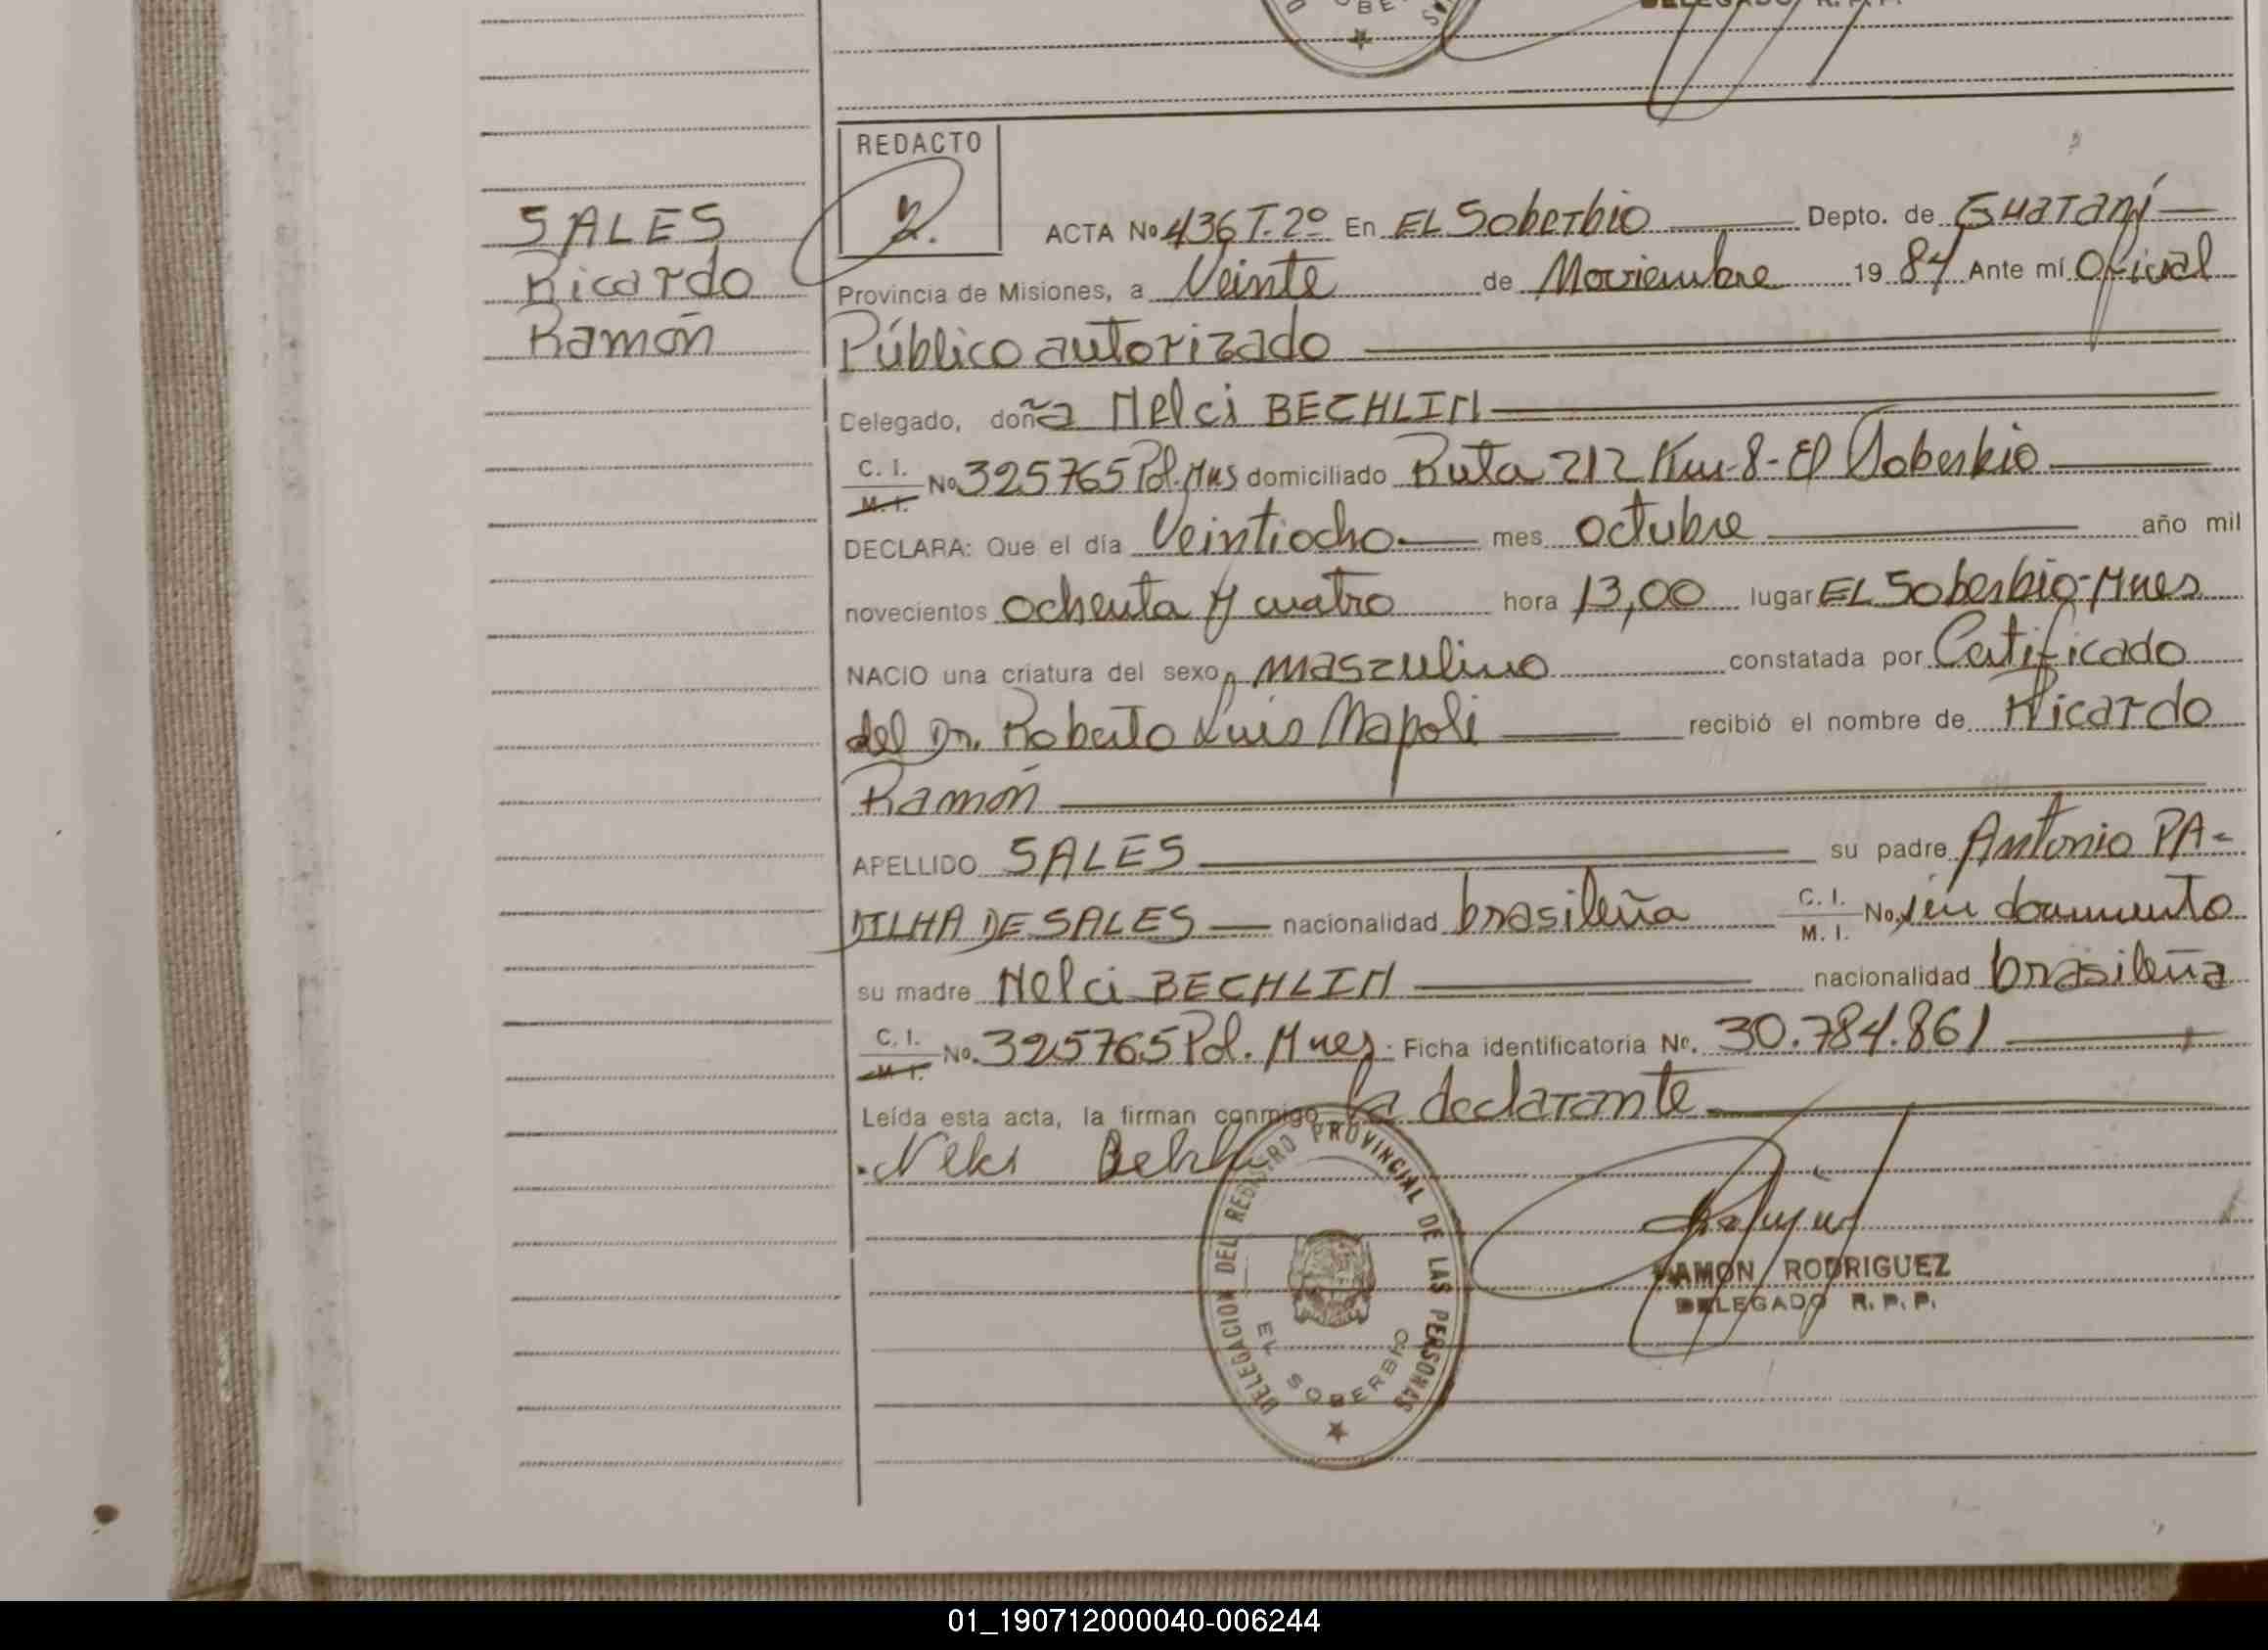 DELEGADO R. P. P.
REDACTO
SALES
Ricardo
Ramón
ACTA No 436 T. 2º En EL Soberbio Depto. de Guaraní
Provincia de Misiones, a Veinte de Noviembre 19 84 Ante mí Oficial
Público autorizado
Delegado, doña Nelci BECHLIN
C. I. M. I. No 325765 Pol. Mns domiciliado Ruta 212 Km-8- El Soberbio
DECLARA: Que el día Veintiocho mes octubre año mil
novecientos ochenta y cuatro hora 13,00 lugar EL Soberbio-Mnes
NACIO una criatura del sexo masculino constatada por Certificado
del Dr. Roberto Luis Napoli recibió el nombre de Ricardo
Ramón
APELLIDO SALES su padre Antonio PA-
DILHA DE SALES nacionalidad brasileña C. I. M. I. No. sin documento
su madre Nelci BECHLIN nacionalidad brasileña
C. I. M. I. No. 325765 Pol. Mnes. Ficha identificatoria No. 30.784.861
Leída esta acta, la firman conmigo la declarante
Nelci
DELEGACION DEL REGISTRO PROVINCIAL DE LAS PERSONAS
EL SOBERBIO
RAMON RODRIGUEZ
DELEGADO R. P. P.
01_190712000040-006244